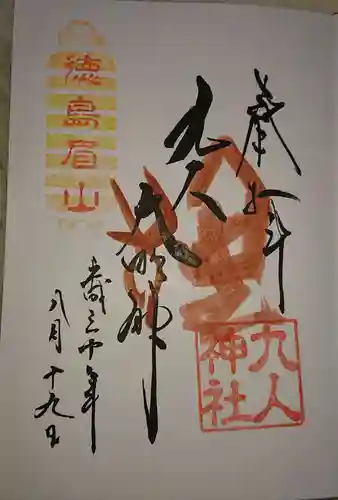 奉拝
九人大明神
九人
神社
徳島眉山
平成三十年
八月十九日